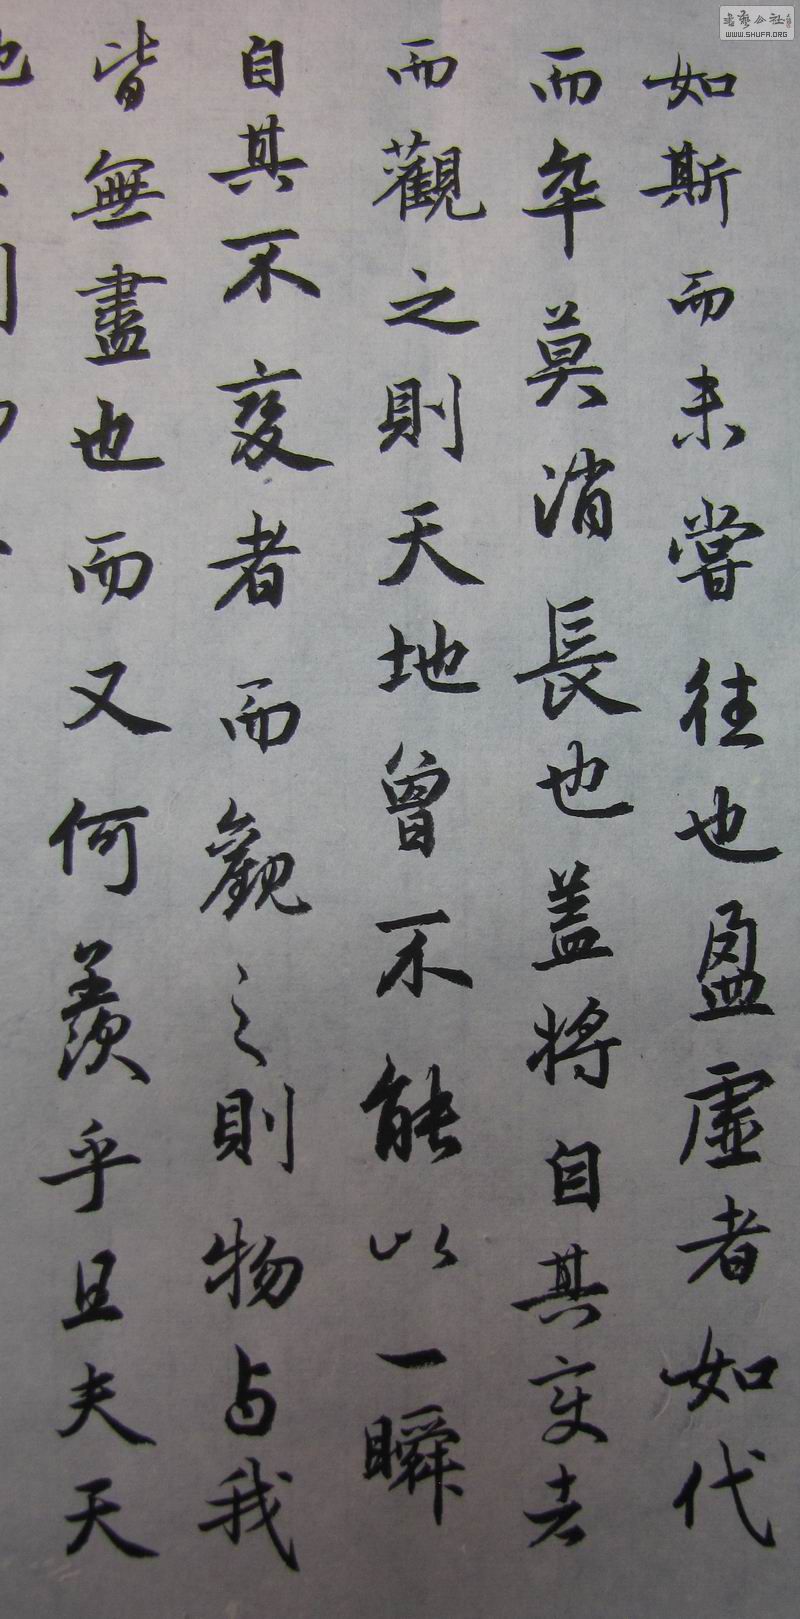 如斯而未嘗往也盈虛者如代
而卒莫消長也盖將自其変者
而觀之則天地曾不能以一瞬
自其不変者而觀之則物与我
皆無盡也而又何羨乎且夫天
書藝公社
WWW.SHUFA.ORG